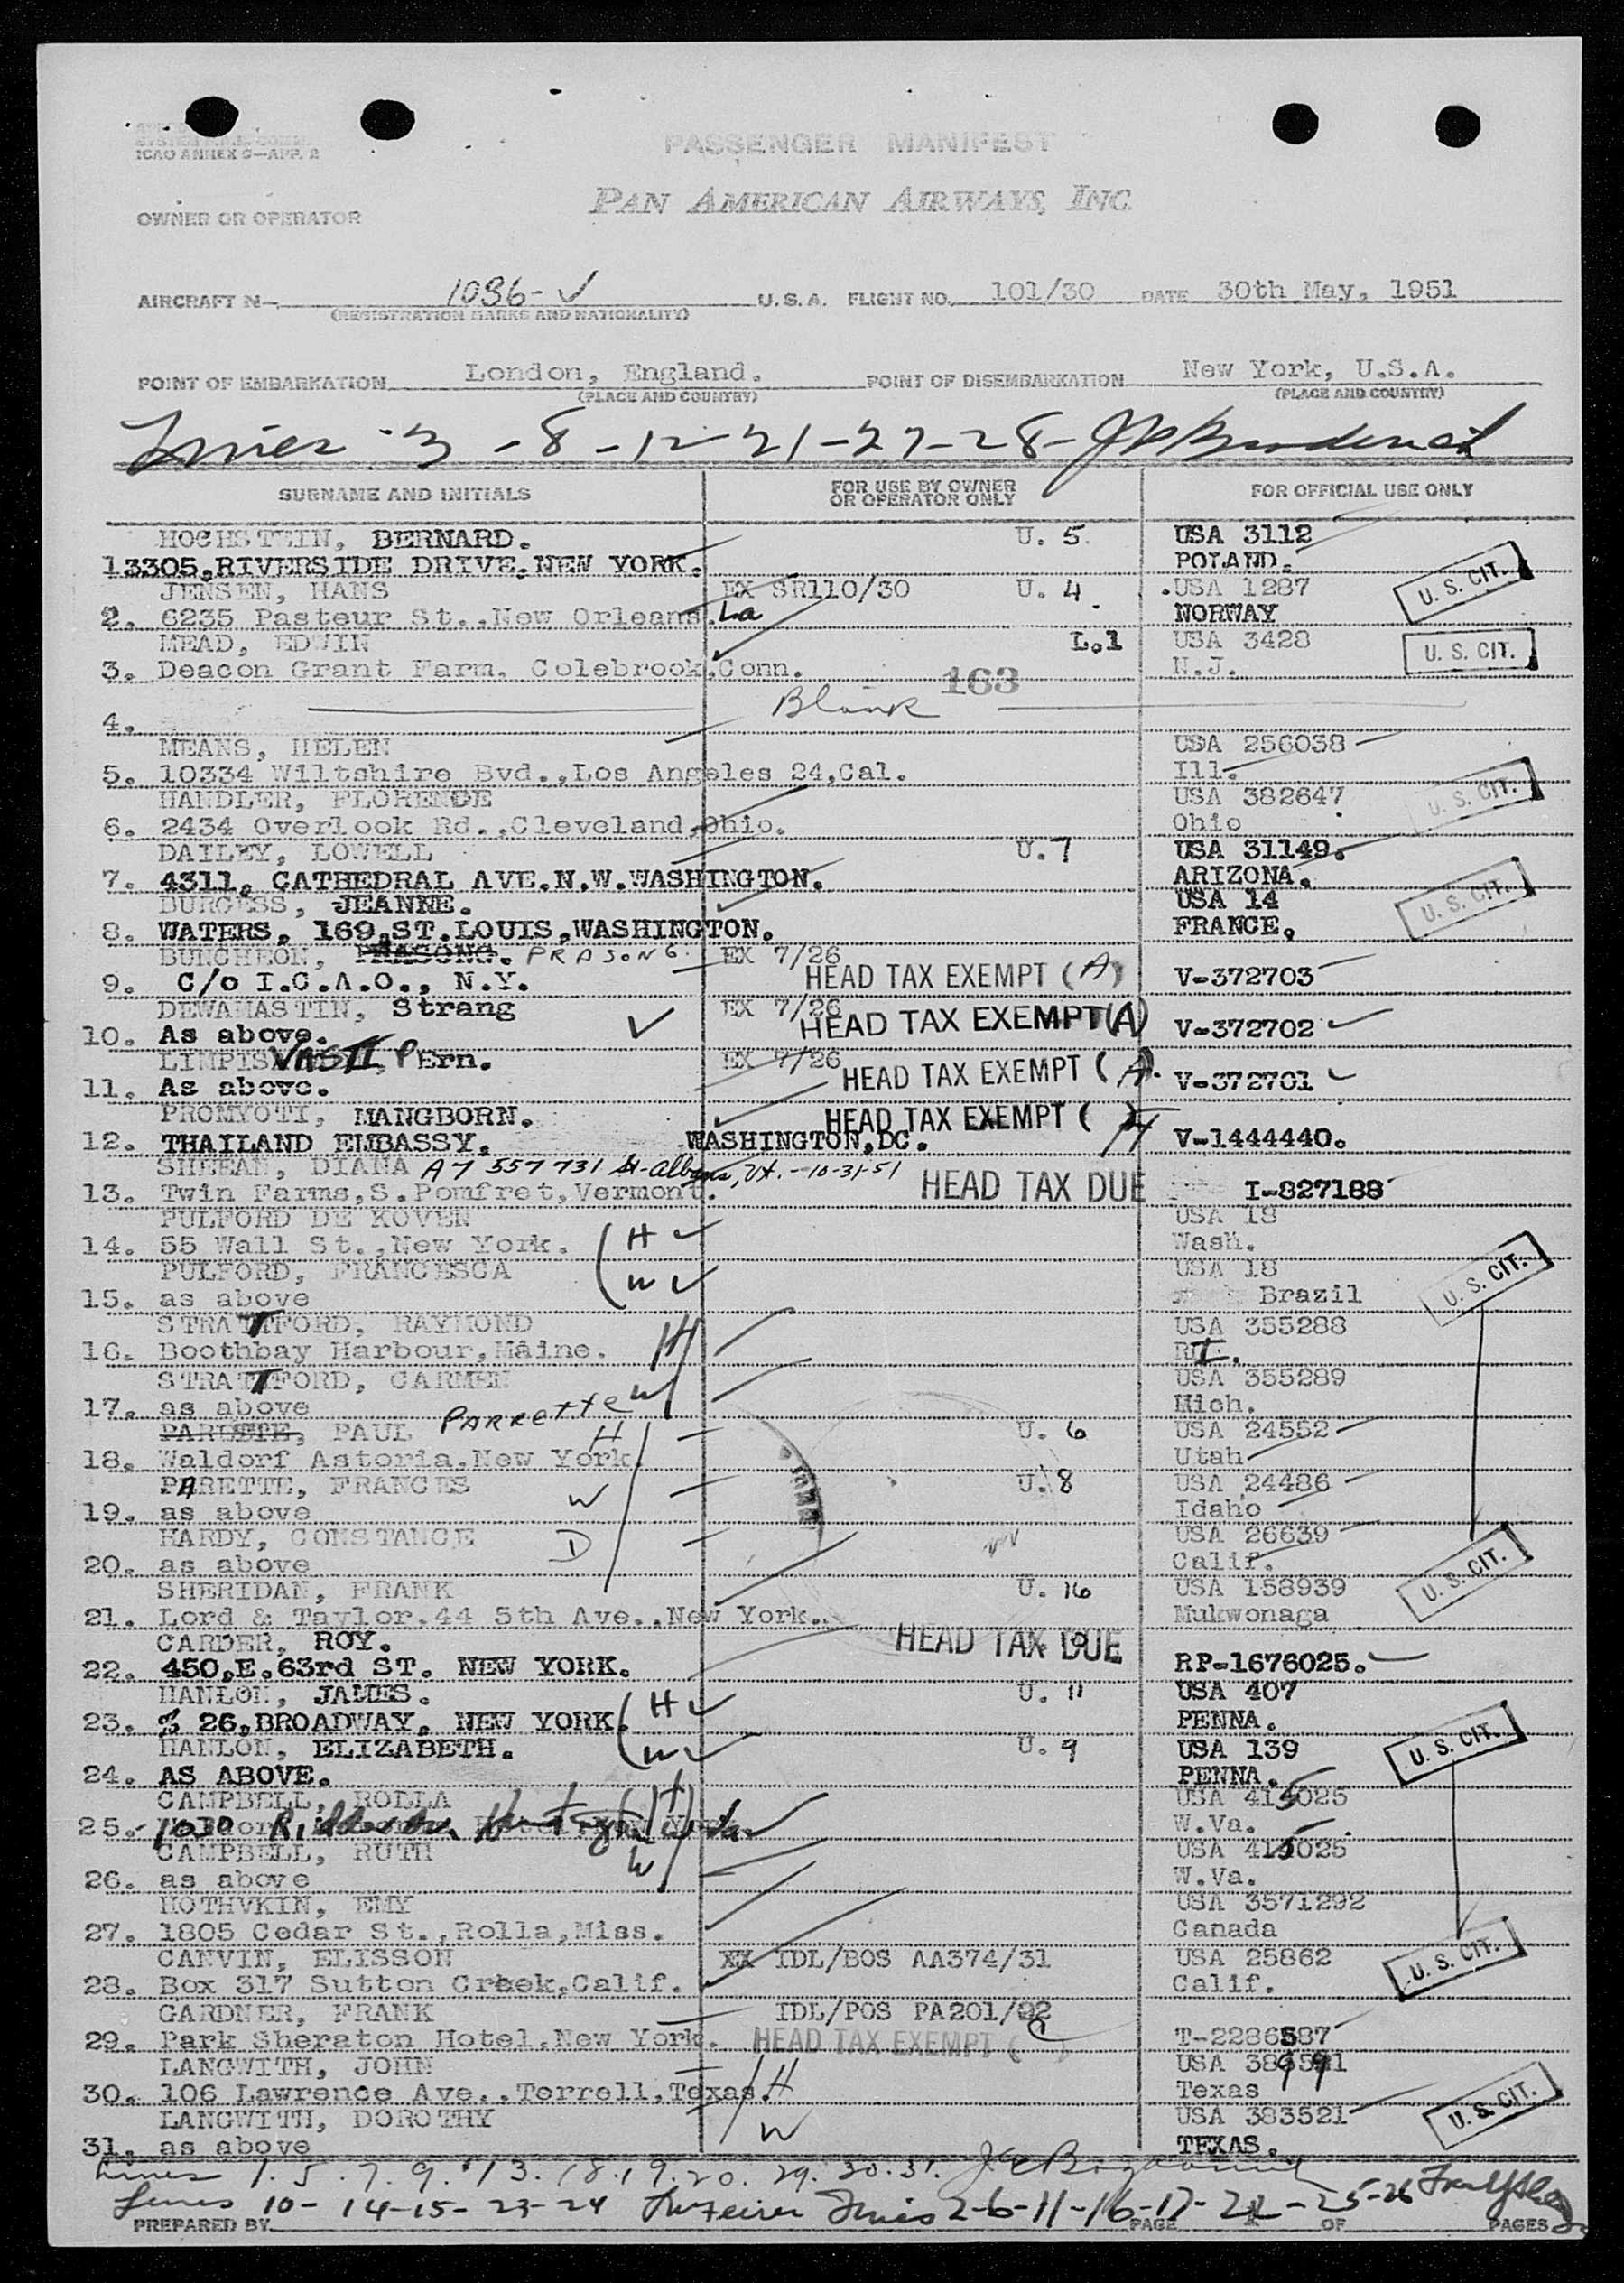 ICAO ANNEX 9—APP. 2
PASSENGER MANIFEST
PAN AMERICAN AIRWAYS, INC.
OWNER OR OPERATOR
AIRCRAFT N— 1036-V U.S.A. FLIGHT NO. 101/30 DATE 30th May, 1951
(REGISTRATION MARKS AND NATIONALITY)
POINT OF EMBARKATION London, England. POINT OF DISEMBARKATION New York, U.S.A.
(PLACE AND COUNTRY) (PLACE AND COUNTRY)
Lines 3 - 8 - 12 - 21 - 27 - 28 -
SURNAME AND INITIALS FOR USE BY OWNER OR OPERATOR ONLY FOR OFFICIAL USE ONLY
HOCHSTEIN, BERNARD. U. 5 USA 3112
13305,RIVERSIDE DRIVE,NEW YORK. POLAND.
JENSEN, HANS EX SR110/30 U. 4 USA 1287 U. S. CIT.
2. 6235 Pasteur St.,New Orleans.La NORWAY
MEAD, EDWIN L.1 USA 3428
3. Deacon Grant Farm, Colebrook,Conn. 163 N.J. U. S. CIT.
4. Blank
MEANS, HELEN USA 256038
5. 10334 Wiltshire Bvd.,Los Angeles 24,Cal. Ill.
HANDLER, FLORENCE USA 382647 U. S. CIT.
6. 2434 Overlook Rd.,Cleveland,Ohio. Ohio
DAILEY, LOWELL U. 7 USA 31149.
7. 4311, CATHEDRAL AVE.N.W.WASHINGTON. ARIZONA.
BURGESS, JEANNE. USA 14 U. S. CIT.
8. WATERS, 169,ST.LOUIS,WASHINGTON. FRANCE.
BUNCHEON, PRASONG. PRASONG. EX 7/26
9. C/o I.C.A.O., N.Y. HEAD TAX EXEMPT (A) V-372703
DEWAHASTIN, Strang EX 7/26
10. As above. HEAD TAX EXEMPT (A) V-372702
VASTI, PErn. EX 7/26
11. As above. HEAD TAX EXEMPT (A). V-372701
PROMYOTI, MANGBORN. HEAD TAX EXEMPT (A)
12. THAILAND EMBASSY. WASHINGTON,DC. V-1444440.
SHEEAN, DIANA A7 557 731 St-Albans, Vt. - 10-31-51
13. Twin Farms,S.Pomfret,Vermont. HEAD TAX DUE I-827188
PULFORD DE KOVEN USA 18
14. 55 Wall St.,New York. H Wash.
PULFORD, FRANCESCA USA 18 U. S. CIT.
15. as above W Brazil
STRATTFORD, RAYMOND USA 355288
16. Boothbay Harbour,Maine. H RI.
STRATTFORD, CARMEN USA 355289
17. as above W Mich.
PAUL PARRETTE H U. 6 USA 24552
18. Waldorf Astoria,New York. Utah
PARETTE, FRANCES U. 8 USA 24486
19. as above W Idaho
HARDY, CONSTANCE USA 26639
20. as above D Calif.
SHERIDAN, FRANK U. 16 USA 158939 U. S. CIT.
21. Lord & Taylor.44 5th Ave.,New York. Mukwonaga
CARDER, ROY. HEAD TAX DUE
22. 450,E.63rd ST. NEW YORK. RP-1676025.
HANLON, JAMES. H U. 11 USA 407
23. % 26,BROADWAY, NEW YORK. PENNA.
HANLON, ELIZABETH. W U. 9 USA 139 U. S. CIT.
24. AS ABOVE. PENNA.
CAMPBELL, ROLLA H USA 415025
25. 1030 W.Va.
CAMPBELL, RUTH W USA 415025
26. as above W.Va.
HOTHVKIN, EMY USA 3571292
27. 1805 Cedar St.,Rolla,Miss. Canada
CANVIN, ELISSON XX IDL/BOS AA374/31 USA 25862 U. S. CIT.
28. Box 317 Sutton Creek,Calif. Calif.
GARDNER, FRANK IDL/POS PA201/02
29. Park Sheraton Hotel,New York. HEAD TAX EXEMPT ( ) T-2286587
LANGWITH, JOHN H
30. 106 Lawrence Ave.,Terrell,Texas. Texas
LANGWITH, DOROTHY W USA 383521 U. S. CIT.
31. as above TEXAS.
Lines 1. 5. 7. 9. 13. 18. 19. 20. 29. 30. 31.
Lines 10 - 14 - 15 - 23 - 24 Lines 2-6-11-16-17-22-25-26
PREPARED BY PAGE OF PAGES